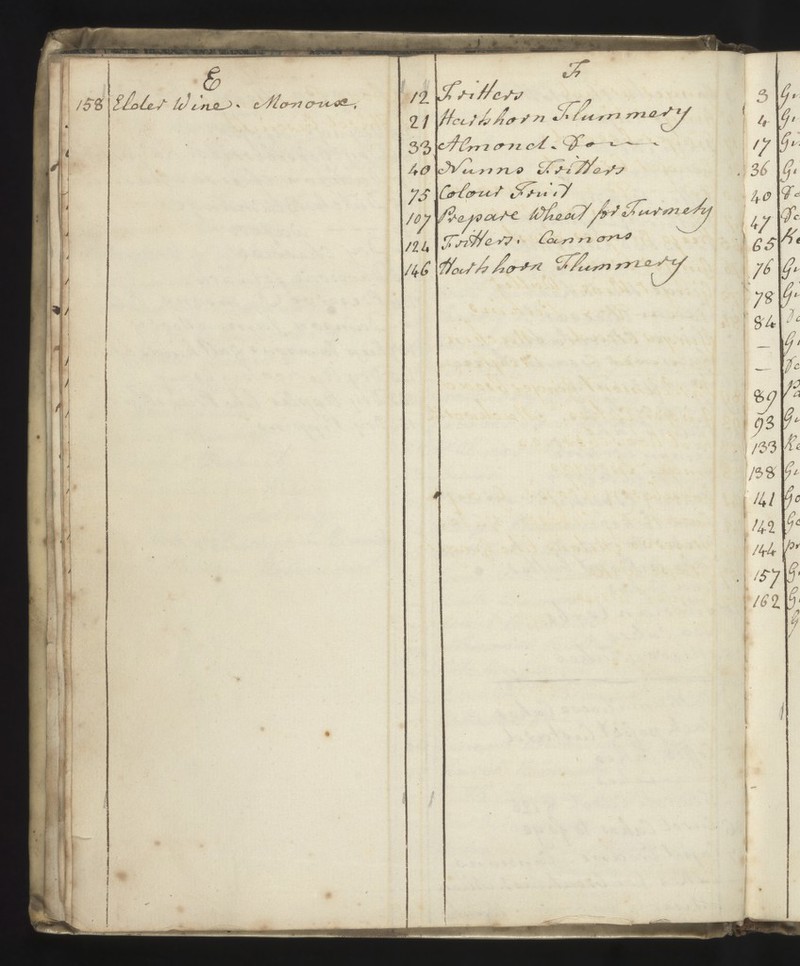 E
158 Elder Wine. Monoux.
F
12 Fritters
21 Hartshorn Flummery
33 Almond. Do
40 Nunns Fritters
75 Colour Fruit
107 Prepare Wheat for Furmety
124 Fritters. Cannons
146 Hartshorn Flummery
3
4
17
36
40
47
65
76
78
84
—
—
89
93
133
138
141
142
144
157
162